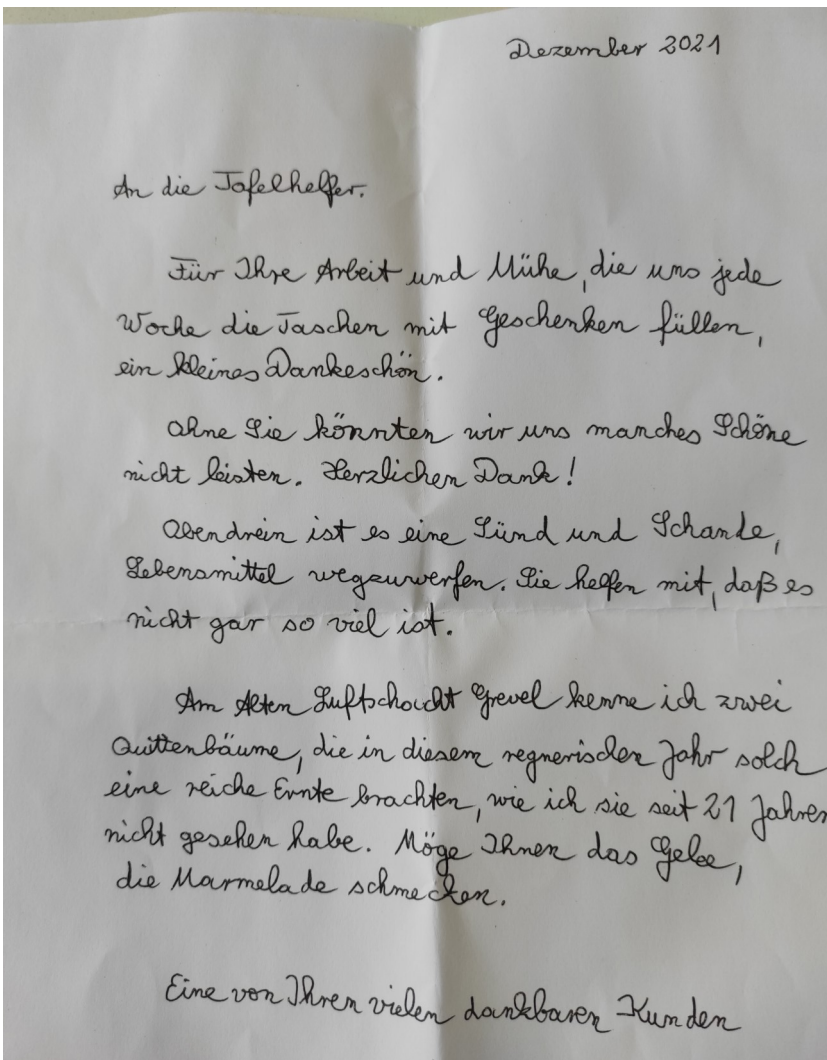 Dezember 2021
An die Tafelhelfer.
Für Ihre Arbeit und Mühe, die uns jede
Woche die Taschen mit Geschenken füllen,
ein kleines Dankeschön.
Ohne Sie könnten wir uns manches Schöne
nicht leisten. Herzlichen Dank!
Obendrein ist es eine Sünd und Schande,
Lebensmittel wegzuwerfen. Sie helfen mit, daß es
nicht gar so viel ist.
Am Alten Luftschacht Grevel kenne ich zwei
Quittenbäume, die in diesem regnerischen Jahr solch
eine reiche Ernte brachten, wie ich sie seit 21 Jahren
nicht gesehen habe. Möge Ihnen das Gelee,
die Marmelade schmecken.
Eine von Ihren vielen dankbaren Kunden